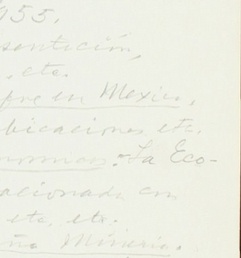 955.
sentación,
, etc.
en Mexico,
bicaciones etc.
normas: La Eco-
acionada con
etc, etc.
Mineria